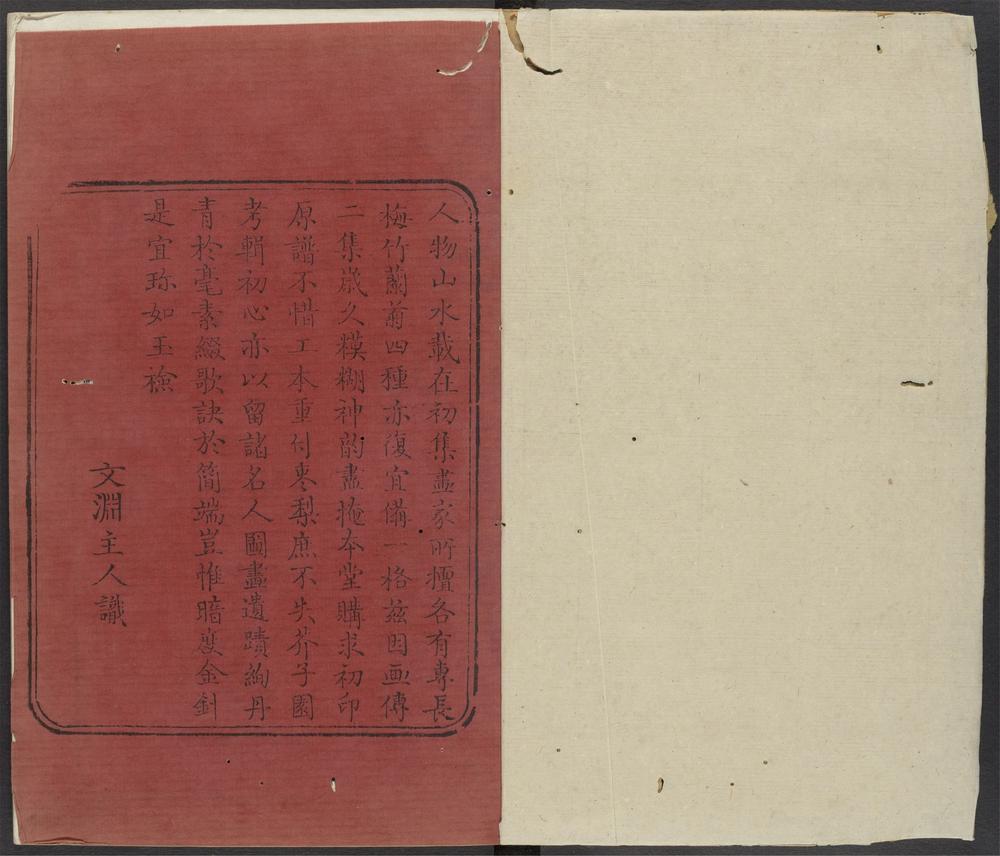 人物山水載在初集畫家所擅各有專長
梅竹蘭菊四種亦復宜備一格茲因画傳
二集歲久糢糊神韵盡掩本堂購求初印
原譜不惜工本重付棗梨庶不失芥子園
考輯初心亦以留諸名人圖畫遺蹟絢丹
青於毫素綴歌訣於簡端豈惟暗度金針
是宜珎如玉檢
文淵主人識